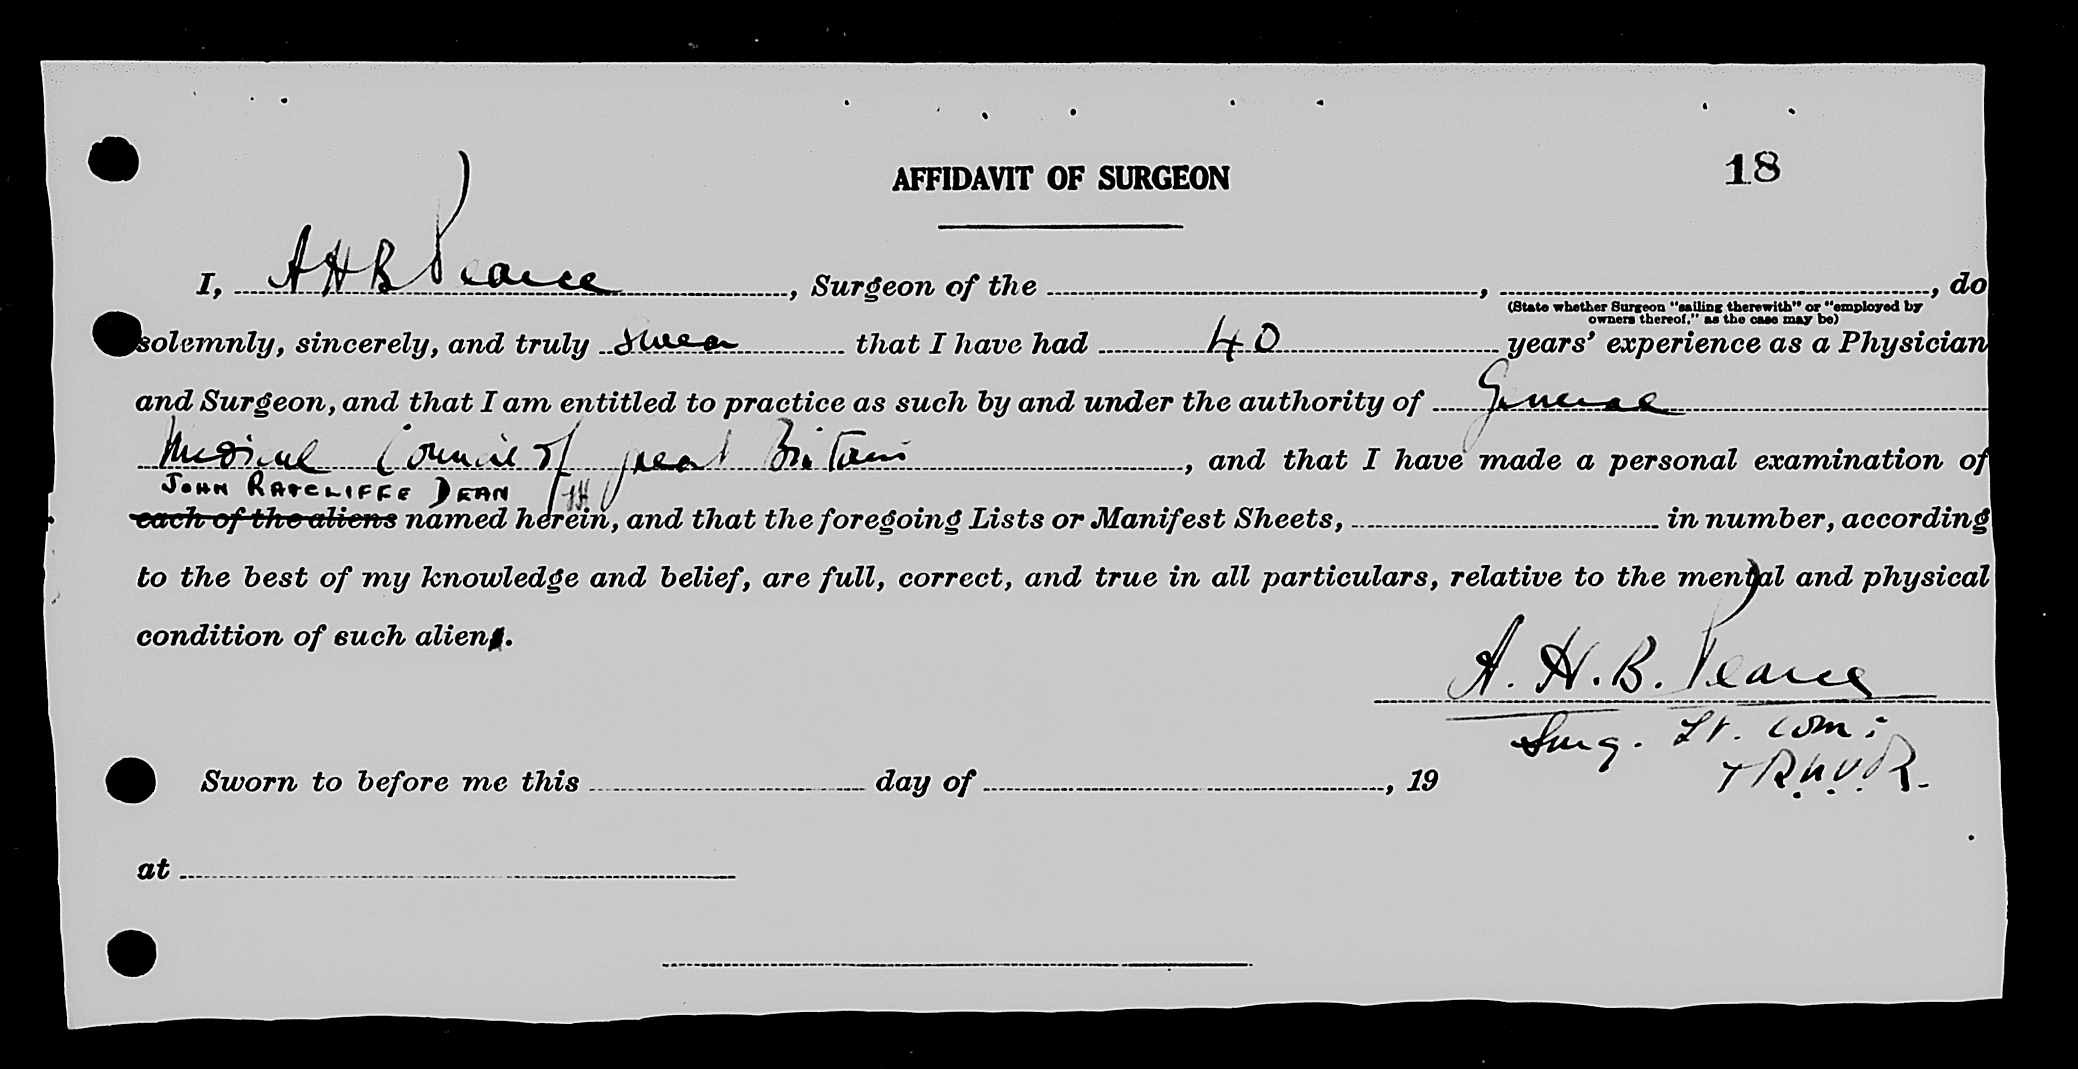 AFFIDAVIT OF SURGEON
18
I, A H B Pearce, Surgeon of the , , do
(State whether Surgeon "sailing therewith" or "employed by
owners thereof," as the case may be)
solemnly, sincerely, and truly swear that I have had 40 years' experience as a Physician
and Surgeon, and that I am entitled to practice as such by and under the authority of General
Medical Council of Great Britain, and that I have made a personal examination of
JOHN RATCLIFFE DEAN
each of the aliens named herein, and that the foregoing Lists or Manifest Sheets, in number, according
to the best of my knowledge and belief, are full, correct, and true in all particulars, relative to the mental and physical
condition of such alien.
A. H. B. Pearce
Surg. Lt. Com:
R.N.V.R.
Sworn to before me this day of , 19
at